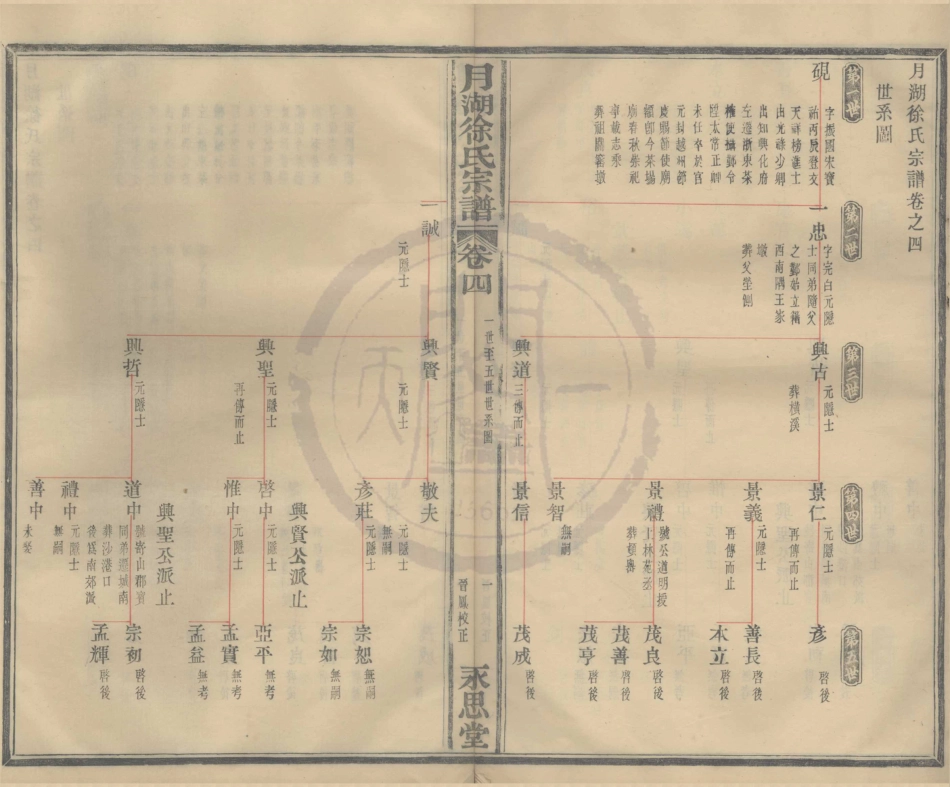 月湖徐氏宗譜卷之四
世系圖
第一世
第二世
第三世
第四世
第五世
硯
字振國宋寶
祐丙辰登文
天祥榜進士
由光祿少卿
出知興化府
左遷浙東茶
權使攝鄞令
陞太常正卿
未任卒於官
元封越州節
度賜節使廟
額節今菜場
廟春秋崇祀
事載志乘
葬祖關窰墩
一忠
字完白元隱
士同弟隨父
之鄞始立籍
西南隅王家
墩
葬父塋側
興古
元隱士
葬橫溪
景仁
元隱士
再傳而止
彥
啓後
景義
元隱士
再傳而止
善長
啓後
本立
啓後
景禮
號公道明授
上林苑丞
茂良
啓後
茂善
啓後
茂亨
啓後
景智
無嗣
興道
三傳而止
景信
茂成
啓後
月湖徐氏宗譜
卷四
一世至五世世系圖
一
晉鳳校正
永思堂
一誠
元隱士
興賢
元隱士
敬夫
元隱士
無嗣
彥莊
元隱士
宗恕
無嗣
宗如
無嗣
興賢公派止
興聖
元隱士
再傳而止
啓中
元隱士
亞平
無考
惟中
元隱士
孟實
無考
孟益
無考
興聖公派止
興哲
元隱士
道中
號寄山郡賓
同弟遷城南
葬沙港口
宗初
啓後
孟輝
啓後
禮中
元隱士
無嗣
善中
未娶